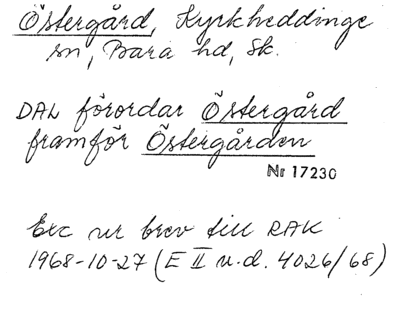 Östergård, Kyrkheddinge
sn, Bara hd, Sk.
DAL förordar Östergård
framför Östergården
Nr 17230
Exc ur brev till RAK
1968-10-27 (E II u.d. 4026/68)